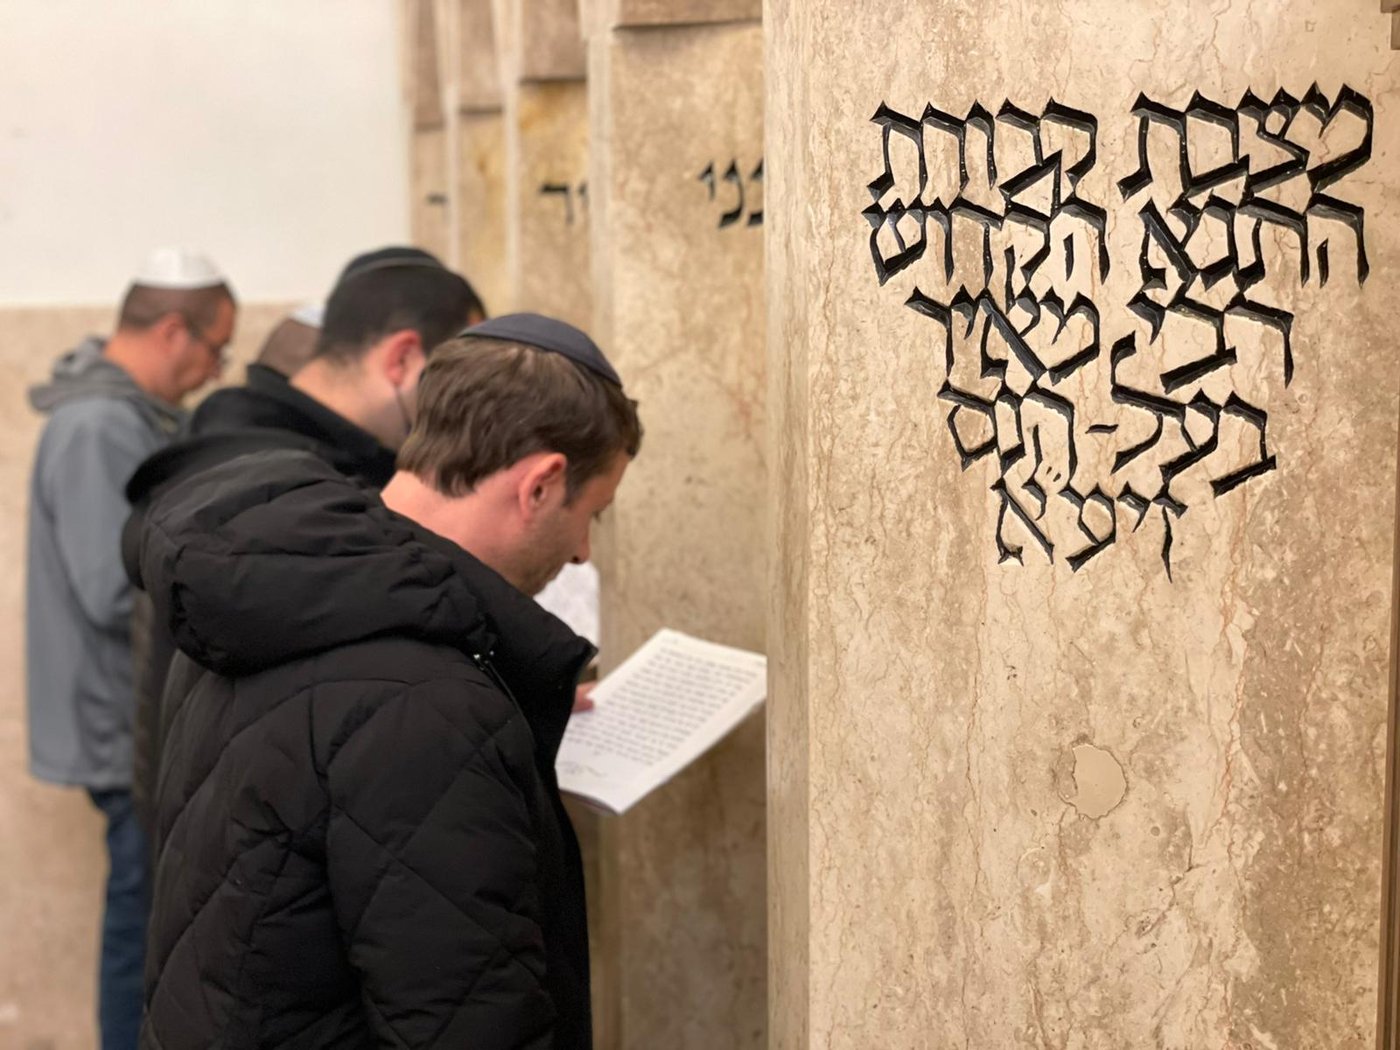 מצבת קבורת
התנא הקדוש
רבי מאיר
בעל-הנס
זיע"א